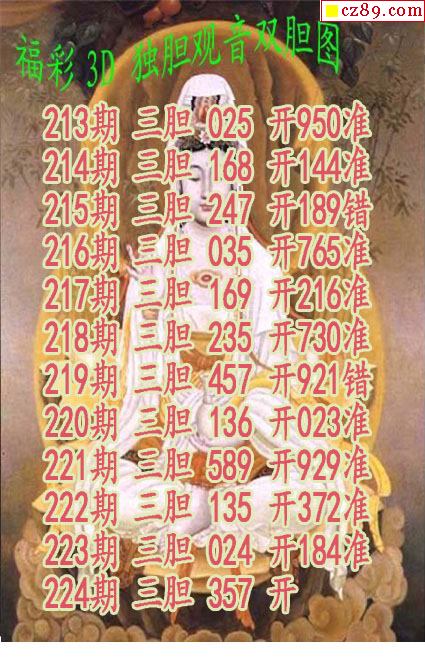 cz89.com
福彩 3D 独胆观音双胆图
213期 三胆 025 开950准
214期 三胆 168 开144准
215期 三胆 247 开189错
216期 三胆 035 开765准
217期 三胆 169 开216准
218期 三胆 235 开730准
219期 三胆 457 开921错
220期 三胆 136 开023准
221期 三胆 589 开929准
222期 三胆 135 开372准
223期 三胆 024 开184准
224期 三胆 357 开